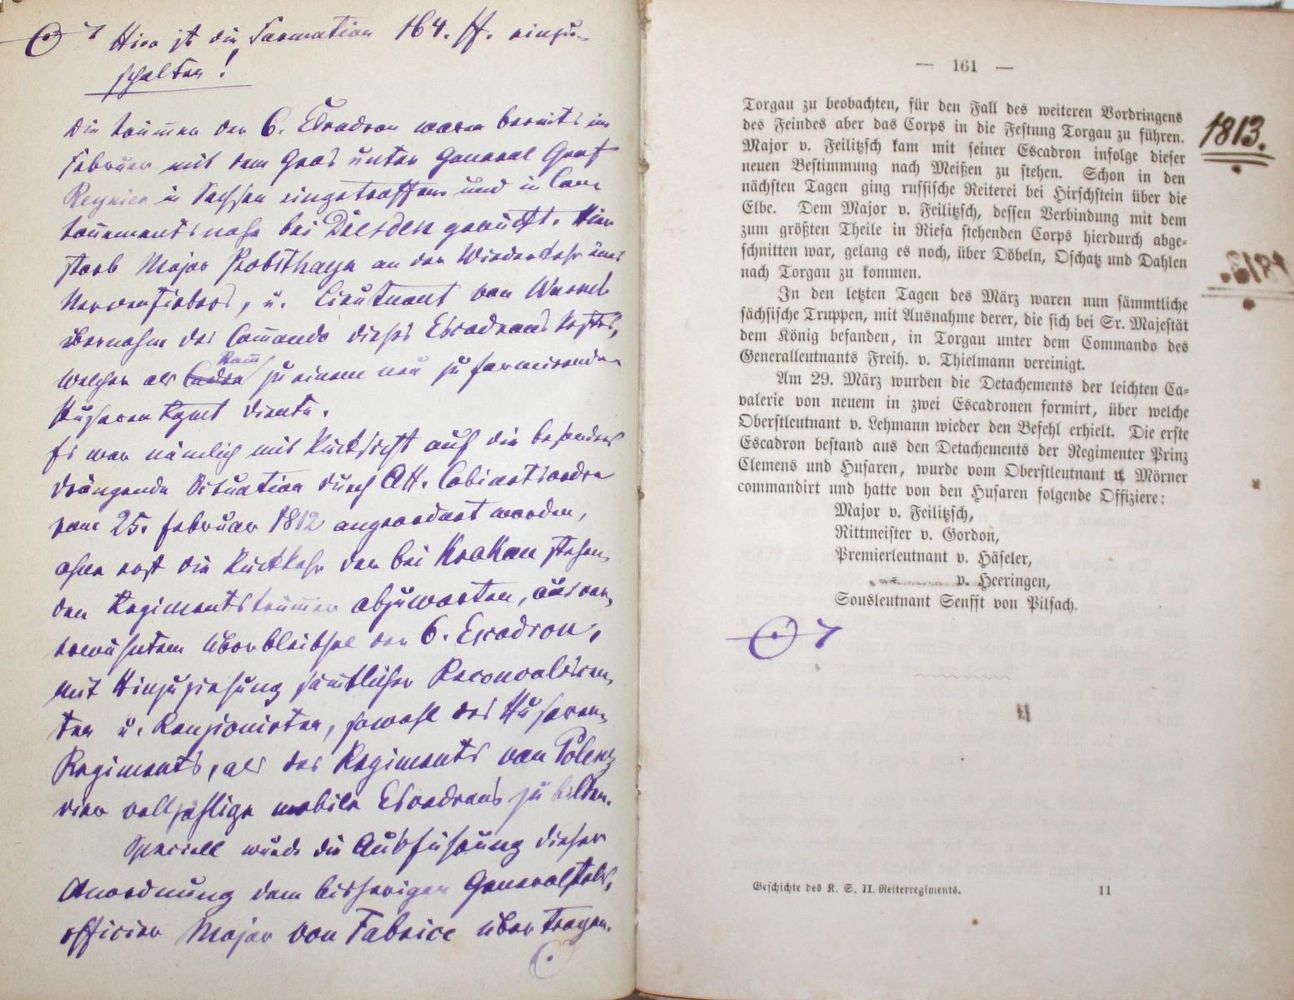 Hier ist die Formation 164. ff. einzu-
schalten!
Die Trümmer der 6. Escadron waren bereits im
Februar mit dem Gros unter General Graf
Reynier in Sachsen eingetroffen und in Can-
tonnements nahe bei Dresden gerückt. Hier
starb Major Probsthayn an der Wiederkehr eines
Nervenfiebers, u. Lieutnant von
übernahm das Commando dieses Escadrons Restes,
welcher als Stamm zu einem neu zu formirenden
Husaren Rgmt diente.
Es war nämlich mit Rücksicht auf die besonders
drängende Situation durch AH. Cabinetsordre
vom 25. Februar 1812 angeordnet worden,
ohne erst die Rückkehr der bei Krakau stehen-
den Regimentstrümmer abzuwarten, aus
Überbleibsel der 6. Escadron,
mit Hinzuziehung sämtlicher Reconvalescen-
ten u. Ranzionirten, sowohl des Husaren-
Regiments, als des Regiments von Polenz
vier vollzählige mobile Escadrons zu bilden.
Speciell wurde die Ausführung dieser
Anordnung dem bisherigen Generalstabs-
officier Major von Fabrice übertragen.
— 161 —
1813.
Torgau zu beobachten, für den Fall des weiteren Vordringens
des Feindes aber das Corps in die Festung Torgau zu führen.
Major v. Feilitzsch kam mit seiner Escadron infolge dieser
neuen Bestimmung nach Meißen zu stehen. Schon in den
nächsten Tagen ging russische Reiterei bei Hirschstein über die
Elbe. Dem Major v. Feilitzsch, dessen Verbindung mit dem
zum größten Theile in Riesa stehenden Corps hierdurch abge-
schnitten war, gelang es noch, über Döbeln, Oschatz und Dahlen
nach Torgau zu kommen.
In den letzten Tagen des März waren nun sämmtliche
sächsische Truppen, mit Ausnahme derer, die sich bei Sr. Majestät
dem König befanden, in Torgau unter dem Commando des
Generalleutnants Freih. v. Thielmann vereinigt.
Am 29. März wurden die Detachements der leichten Ca-
valerie von neuem in zwei Escadronen formirt, über welche
Oberstleutnant v. Lehmann wieder den Befehl erhielt. Die erste
Escadron bestand aus den Detachements der Regimenter Prinz
Clemens und Husaren, wurde vom Oberstleutnant v. Mörner
commandirt und hatte von den Husaren folgende Offiziere:
Major v. Feilitzsch,
Rittmeister v. Gordon,
Premierleutnant v. Häseler,
v. Heeringen,
Sousleutnant Senfft von Pilsach.
Geschichte des K. S. II. Reiterregiments. 11